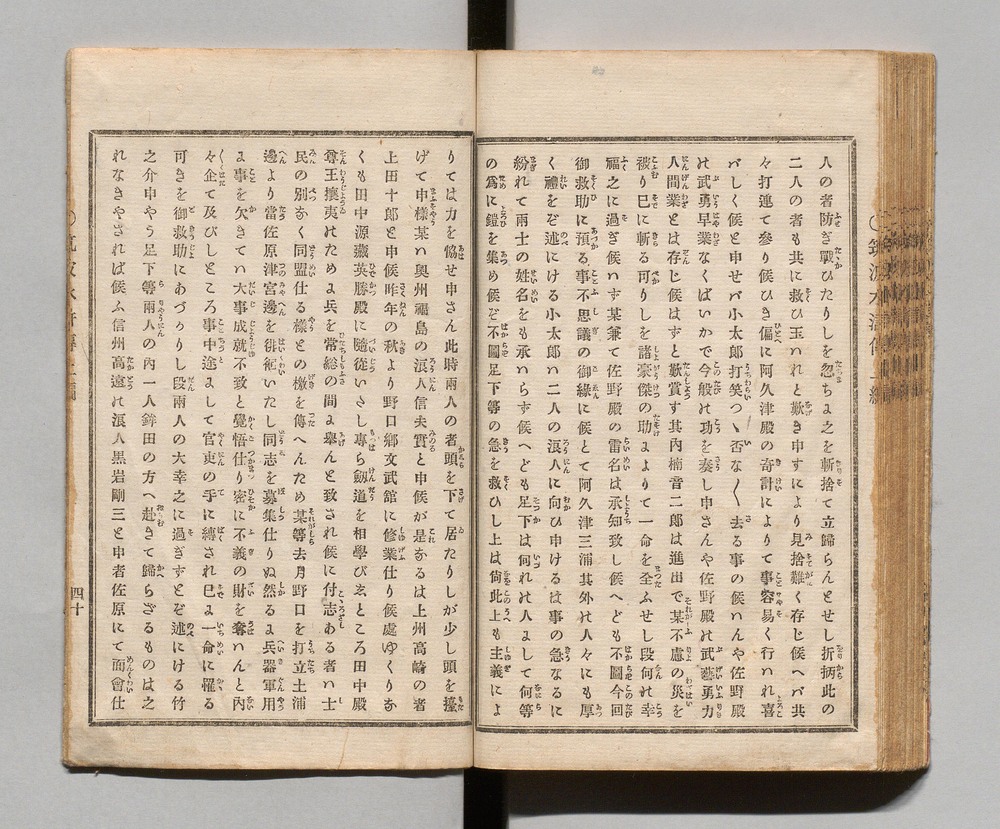 人の者防ぎ戰ひたりしを忽ちよ之を斬捨て立歸らんとせし折柄此の
二人の者も共に救ひ玉ハれと歎き申すにより見捨難く存じ候ヘバ共
々打連て參り候ひき偏に阿久津殿の奇計によりて事容易く行ハれ喜
バしく候と申せバ小太郎打笑つゝ否な〱去る事の候ハんや佐野殿
れ武勇早業なくばいかで今般れ功を奏し申さんや佐野殿れ武藝勇力
人間業とは存じ候はずと歎賞す其内楠音二郎は進出で某不慮の災を
被り已に斬る可りしを諸豪傑の助よよりて一命を全ふせし段何れ幸
福之に過ぎ候ハず某兼て佐野殿の雷名は承知致し候へども不圖今回
御救助に預る事不思議の御緣に候とて阿久津三浦其外れ人々にも厚
く禮をぞ述にける小太郎ハ二人の浪人に向ひ申けるは事の急なるに
紛れて兩士の姓名をも承ハらず候へども足下は何れれ人よして何等
の爲に鎧を集め候ぞ不圖足下等の急を救ひし上は尙此上も主義によ
りては力を協せ申さん此時兩人の者頭を下て居たりしが少し頭を擡
げて申樣某ハ奧州福島の浪人信夫實と申候が是なるは上州高崎の者
上田十郎と申候昨年の秋より野口鄕文武館に修業仕り候處ゆくりな
くも田中源藏英勝殿に隨從いたし專ら劔道を相學びゑところ田中殿
尊王攘夷れためよ兵を常總の間よ擧んと致され候に付志ある者ハ士
民の別なく同盟仕る樣との檄を傳へんため某等去月野口を打立土浦
邊より當佐原津宮邊を徘徊いたし同志を募集仕りぬ然るよ兵器軍用
よ事を欠きてハ大事成就不致と覺悟仕り密に不義の財を奪ハんと內
々企て及びしところ事中途よして官吏の手に縛され已よ一命に罹る
可きを御救助にあづかりし段兩人の大幸之に過ぎずとぞ述にける竹
之介申やう足下等兩人の內一人鉾田の方へ赴きて歸らざるものは之
れなきやされば候ふ信州高遠れ浪人黑岩剛三と申者佐原にて面會仕
四十